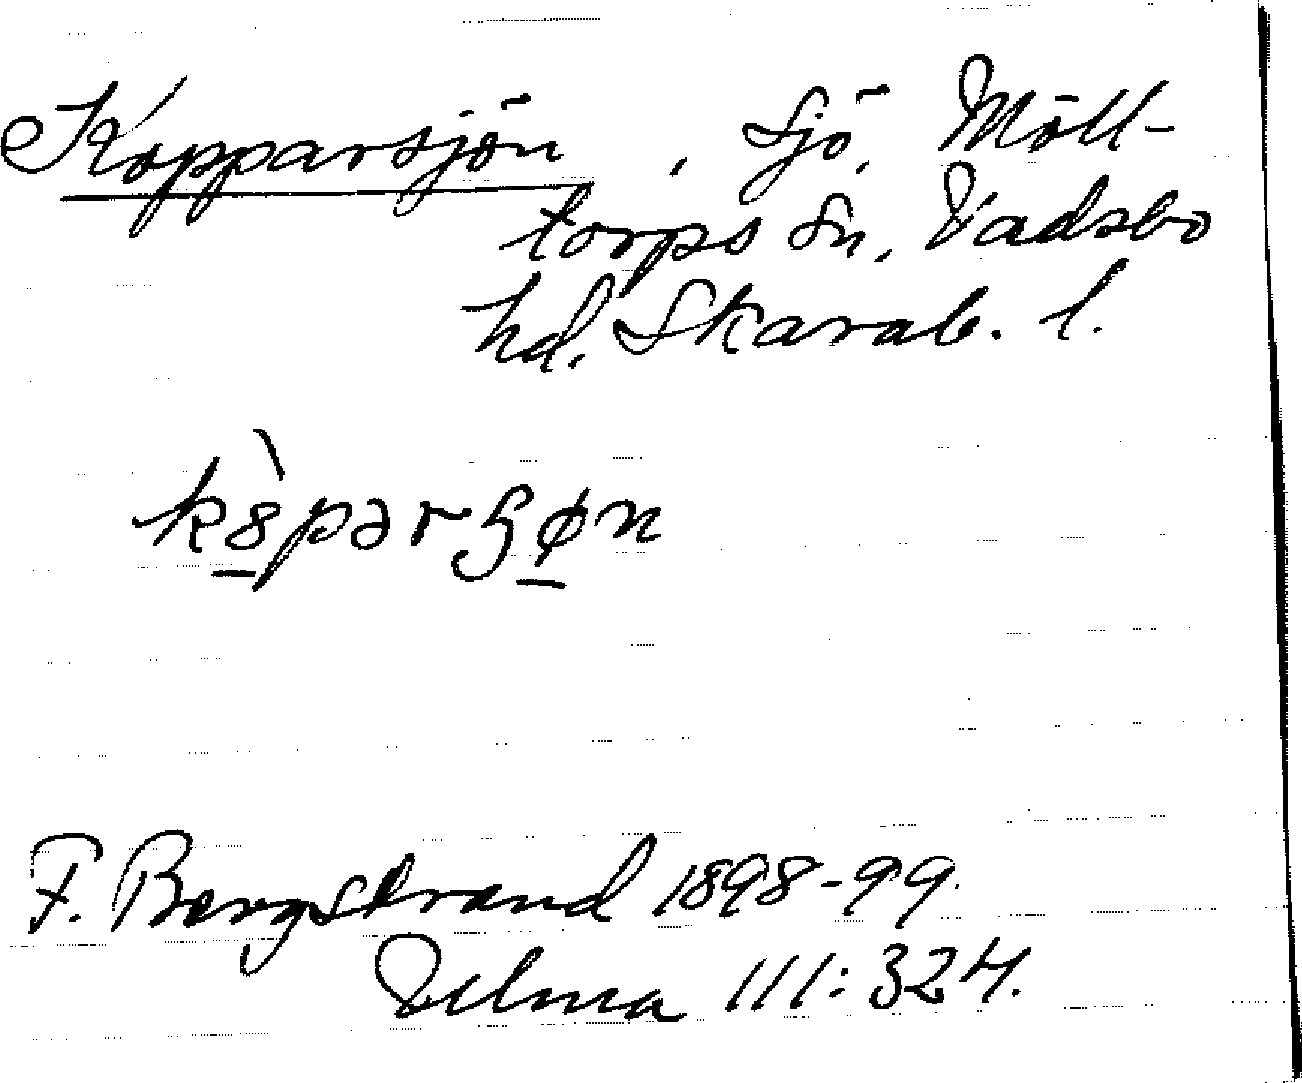 Kopparsjön, sjö, Mölltorps sn, Vadsbo
hd. Skarab. l.
F. Bergstrand 1898-99.
Ulma 111:324.